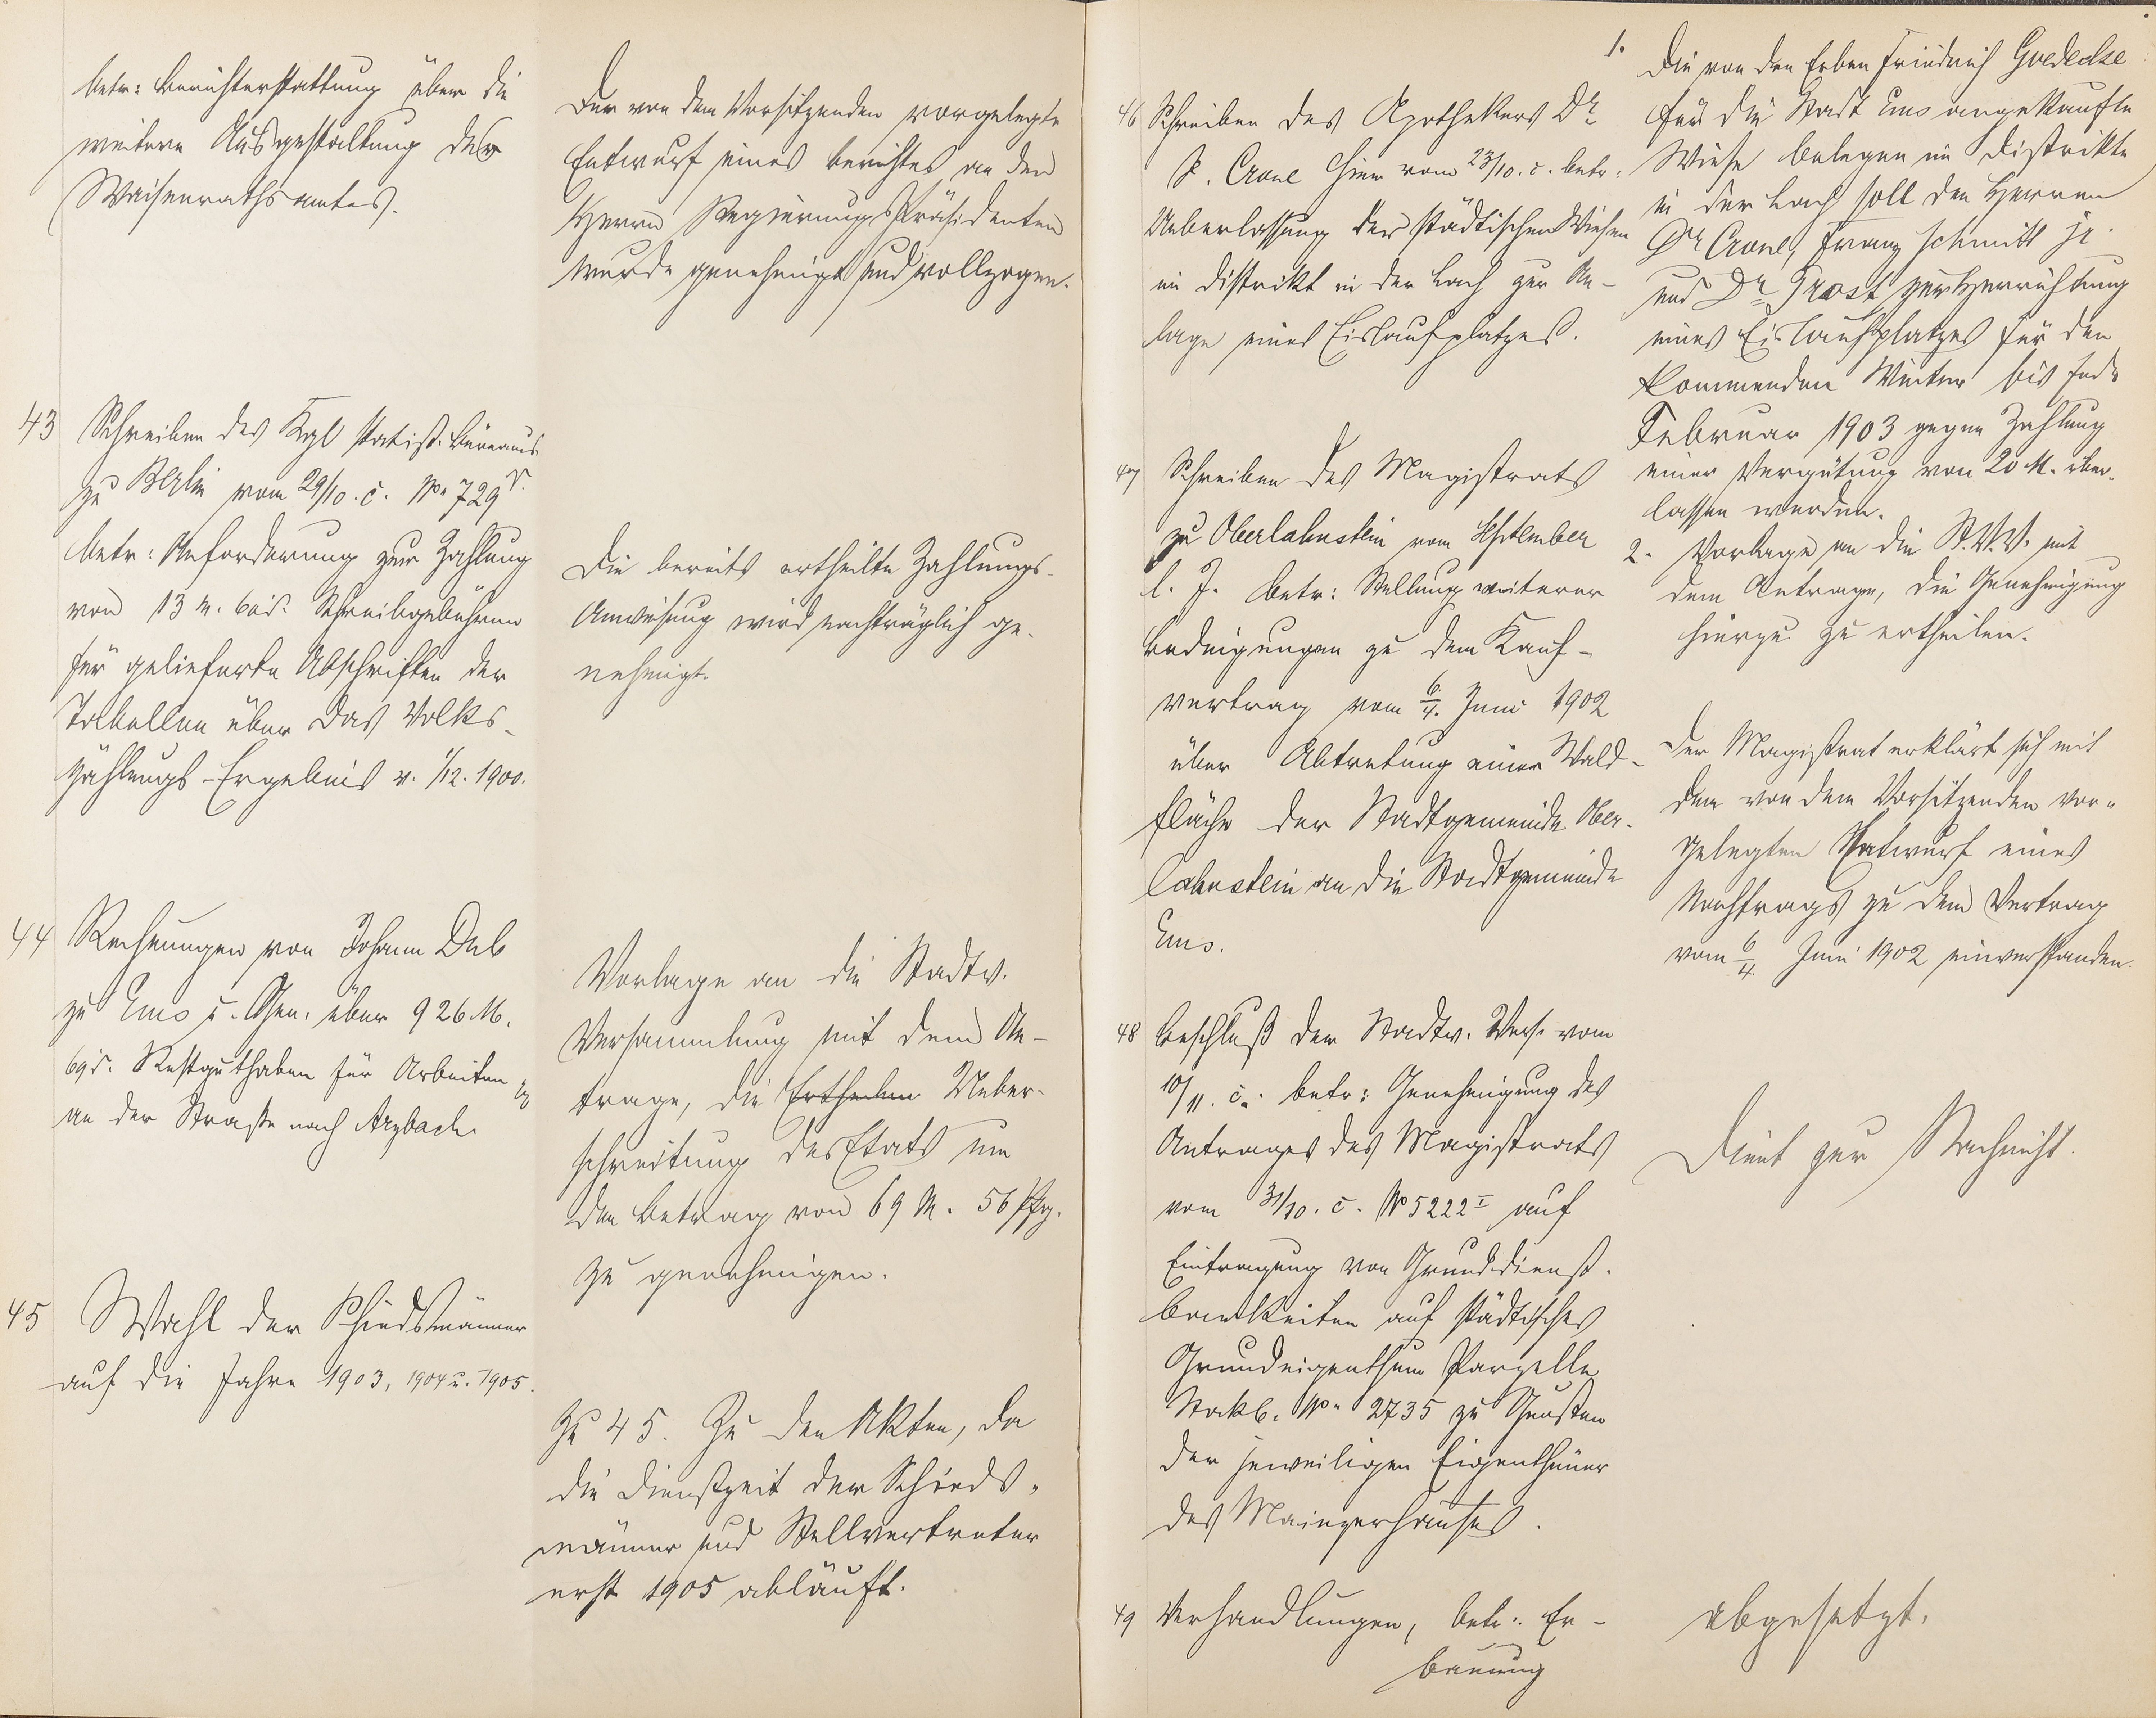 betr: Berichterstattung über die
weitere Ausgestaltung des
Waisenrathsamtes.
Der von dem Vorsitzenden vorgelegte
Entwurf eines Berichtes an den
Herrn Regierungspräsidenten
wurde genehmigt und vollzogen.
43 Schreiben des Kgl statist. Büreaus
zu Berlin vom 29/10. c. No 729
betr: Anforderung zur Zahlung
von 13 M. Schreibgebühren
für gelieferte Abschriften der
Tabellen über das Volks-
zählungs-Ergebnis v. 1/12. 1900.
Die bereits ertheilte Zahlungs-
Anweisung wird nachträglich ge-
nehmigt.
44 Rechnungen von Johann
zu Ems u. Gen. über 926 M.
69 Restguthaben für Arbeiten
an der Straße nach Arzbach
Vorlage an die Stadtv.
Versammlung mit dem An-
trage, die Ertheilen Ueber-
schreitung des Etats um
den Betrag von 69 M. 56 Pfg.
zu genehmigen.
45 Wahl der Schiedsmänner
auf die Jahre 1903, 1904 u. 1905.
Zu 45. Zu den Akten, da
die Dienstzeit der Schieds-
männer und Stellvertreter
erst 1905 abläuft.
46 Schreiben des Apothekers Dr
Crone hier vom 23/10. c. betr:
Ueberlassung der städtischen Wiesen
im Distrikt in der Lach zur An-
lage eines Eislaufplatzes.
1. Die von den Erben Friedrich Goedecke
für die Stadt Ems angekaufte
Wiese belegen im Distrikte
in der Lach soll den Herren
Dr Crone, Franz Schmitt jr.
und Dr zur Herrichtung
eines Eislaufplatzes für den
kommenden Winter bis Ende
Februar 1903 gegen Zahlung
einer Vergütung von 20 M. über-
lassen werden.
2. Vorlage an die St.V.V. mit
dem Antrage, die Genehmigung
hierzu zu ertheilen.
47 Schreiben des Magistrats
zu Oberlahnstein vom September
l. J. betr: Stellung weiterer
Bedingungen zu dem Kauf-
vertrag vom 6/4. Juni 1902
über Abtretung einer Wald-
fläche der Stadtgemeinde Ober-
lahnstein an die Stadtgemeinde
Ems.
Der Magistrat erklärt sich mit
dem von dem Vorsitzenden vor-
gelegten Entwurf eines
Nachtrags zu dem Vertrag
vom 6/4. Juni 1902 einverstanden.
48 Beschluß der Stadtv. Vers. vom
10/11. c. betr: Genehmigung des
Antrages des Magistrats
vom 31/10. c. No 5222 I auf
Eintragung von Grunddienst-
barkeiten auf städtisches
Grundeigenthum Parzelle
Stockb. No 2735 zu Gunsten
der jeweiligen Eigenthümer
des Mainzerhauses.
Dient zur Nachricht.
49 Verhandlungen, betr: Er-
bauung
abgesetzt.